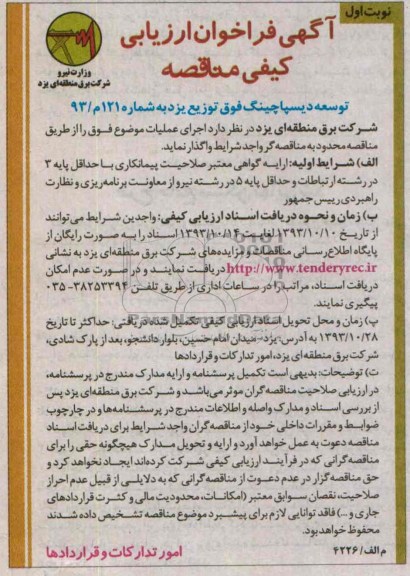 نوبت اول
آگهی فراخوان ارزیابی
کیفی مناقصه
وزارت نیرو
شرکت برق منطقه‌ای یزد
توسعه دیسپاچینگ فوق توزیع یزد به شماره ۱۲۱م/۹۳
شرکت برق منطقه‌ای یزد در نظر دارد اجرای عملیات موضوع فوق را از طریق
مناقصه محدود به مناقصه‌گر واجد شرایط واگذار نماید.
الف) شرایط اولیه: ارایه گواهی معتبر صلاحیت پیمانکاری با حداقل پایه ۳
در رشته ارتباطات و حداقل پایه ۵ در رشته نیرو از معاونت برنامه‌ریزی و نظارت
راهبردی رییس جمهور
ب) زمان و نحوه دریافت اسناد ارزیابی کیفی: واجدین شرایط می‌توانند
از تاریخ ۱۳۹۳/۱۰/۱۰ لغایت ۱۳۹۳/۱۰/۱۴ اسناد را به صورت رایگان از
پایگاه اطلاع‌رسانی مناقصات و مزایده‌های شرکت برق منطقه‌ای یزد به نشانی
http://www.tenderyrec.ir دریافت نمایند و در صورت عدم امکان
دریافت اسناد، مراتب را در ساعات اداری از طریق تلفن ۳۸۲۵۳۳۹۴-۰۳۵
پیگیری نمایند.
پ) زمان و محل تحویل اسناد ارزیابی کیفی تکمیل شده دریافتی: حداکثر تا تاریخ
۱۳۹۳/۱۰/۲۸ به آدرس: یزد- میدان امام حسین، بلوار دانشجو، بعد از پارک شادی،
شرکت برق منطقه‌ای یزد، امور تدارکات و قراردادها
ت) توضیحات: بدیهی است تکمیل پرسشنامه و ارایه مدارک مندرج در پرسشنامه،
در ارزیابی صلاحیت مناقصه‌گران موثر می‌باشد و شرکت برق منطقه‌ای یزد پس
از بررسی اسناد و مدارک واصله و اطلاعات مندرج در پرسشنامه‌ها و در چارچوب
ضوابط و مقررات داخلی خود از مناقصه‌گران واجد شرایط برای دریافت اسناد
مناقصه دعوت به عمل خواهد آورد و ارایه و تحویل مدارک هیچگونه حقی را برای
مناقصه‌گرانی که در فرآیند ارزیابی کیفی شرکت کرده‌اند ایجاد نخواهد کرد و
حق مناقصه‌گزار در عدم دعوت از مناقصه‌گرانی که به دلایلی از قبیل عدم احراز
صلاحیت، نقصان سوابق معتبر (امکانات، محدودیت مالی و کثرت قراردادهای
جاری و...) فاقد توانایی لازم برای پیشبرد موضوع مناقصه تشخیص داده شدند
محفوظ خواهد بود.
م الف/۴۲۲۶
امور تدارکات و قراردادها